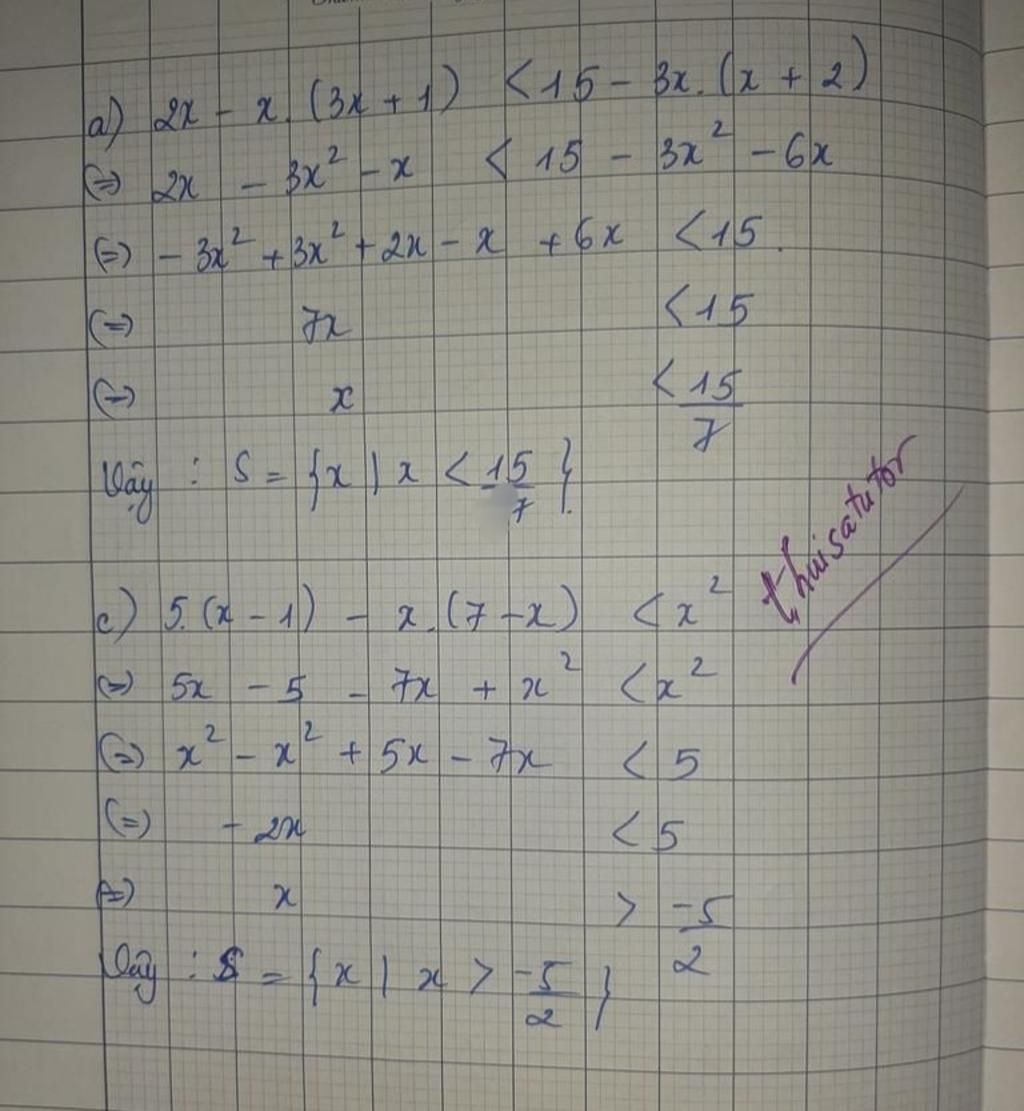 a) 2x - x.(3x + 1) < 15 - 3x.(x + 2)
(=) 2x - 3x² - x < 15 - 3x² - 6x
(=) - 3x² + 3x² + 2x - x + 6x < 15.
(=) 7x < 15
(=) x < 15/7
Vậy : S = {x | x < 15/7}.
thuisatutor
c) 5.(x - 1) - x.(7 - x) < x²
(=) 5x - 5 - 7x + x² < x²
(=) x² - x² + 5x - 7x < 5
(=) - 2x < 5
(=) x > -5/2
Vậy : S = {x | x > -5/2}